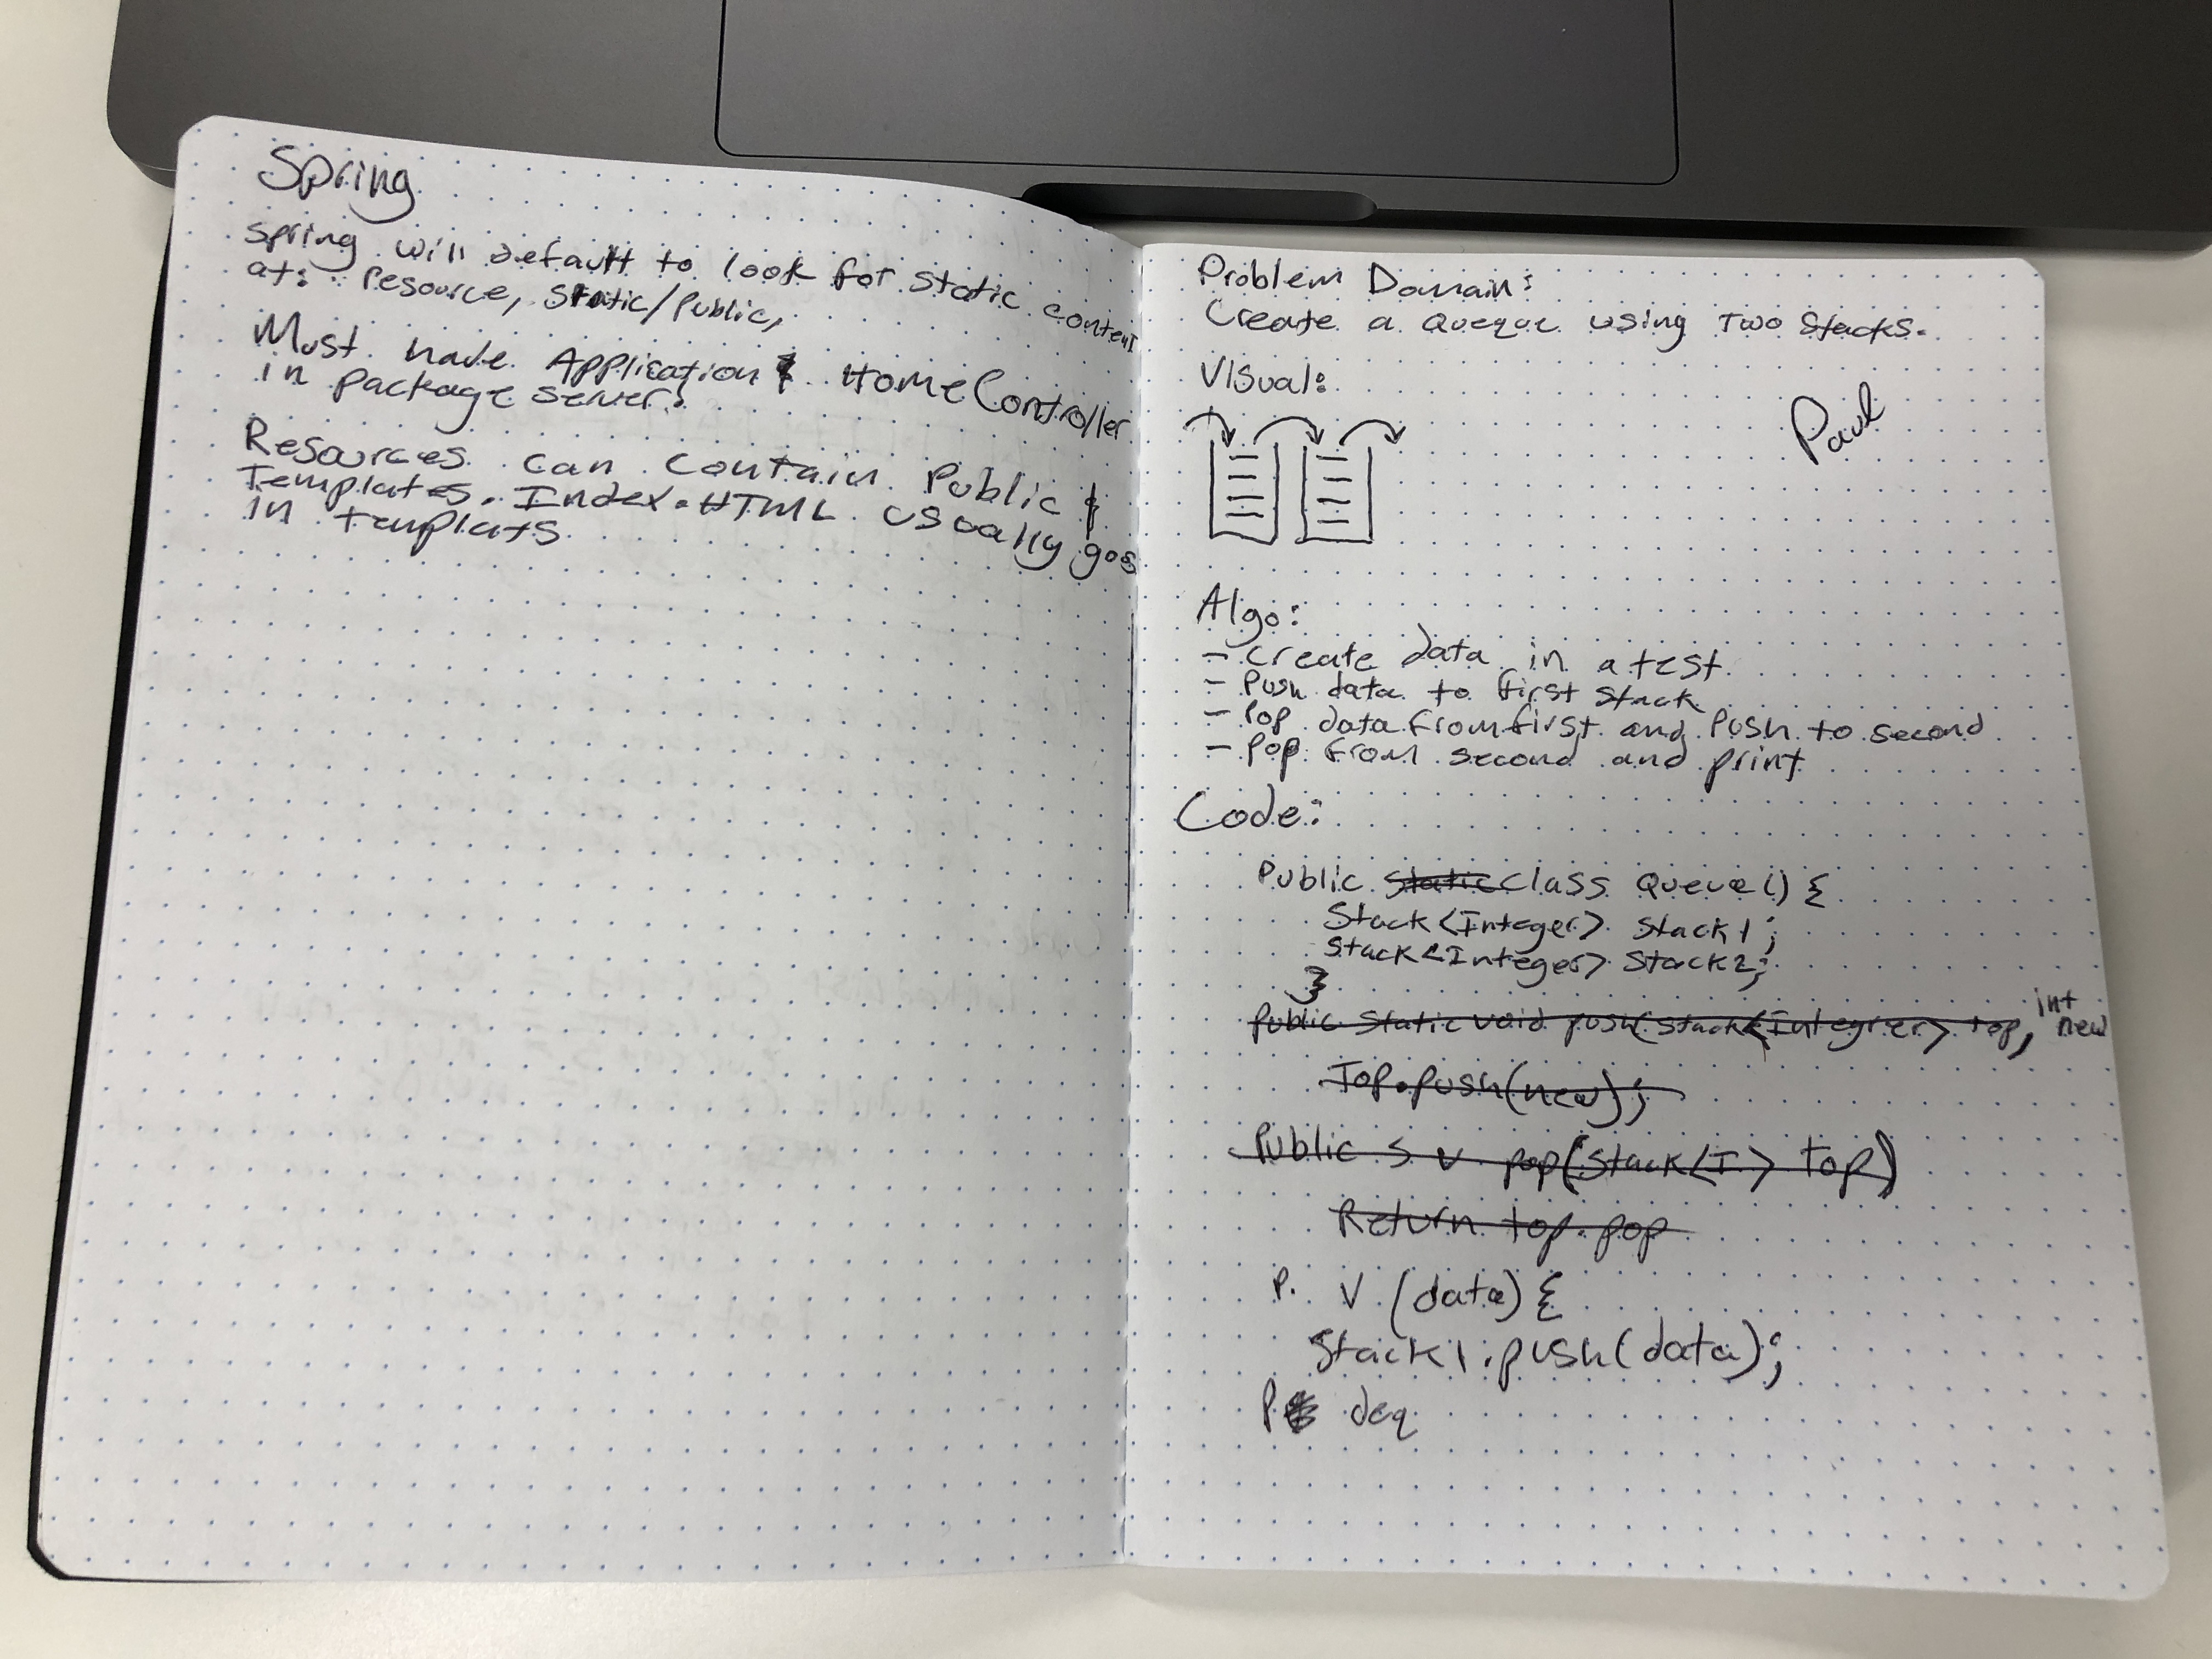 Spring
Spring will default to look for static content
at: Resource, Static/Public,
Must have Application & HomeController
in package server!
Resources can contain Public &
Templates. Index.HTML usually goes
in templats
Problem Domain:
Create a queue using Two Stacks.
Visual:
Paul
Algo:
- Create data in a test.
- Push data to first stack
- Pop data from first and push to second
- Pop from second and print
Code:
Public static class Queue() {
Stack<Integer> stack1;
Stack<Integer> stack2;
}
Public static void push(stack<Integer> top, int new
Top.push(new);
Public s v pop(stack<T> top)
Return top.pop
P. V (data) {
Stack1.push(data);
deq